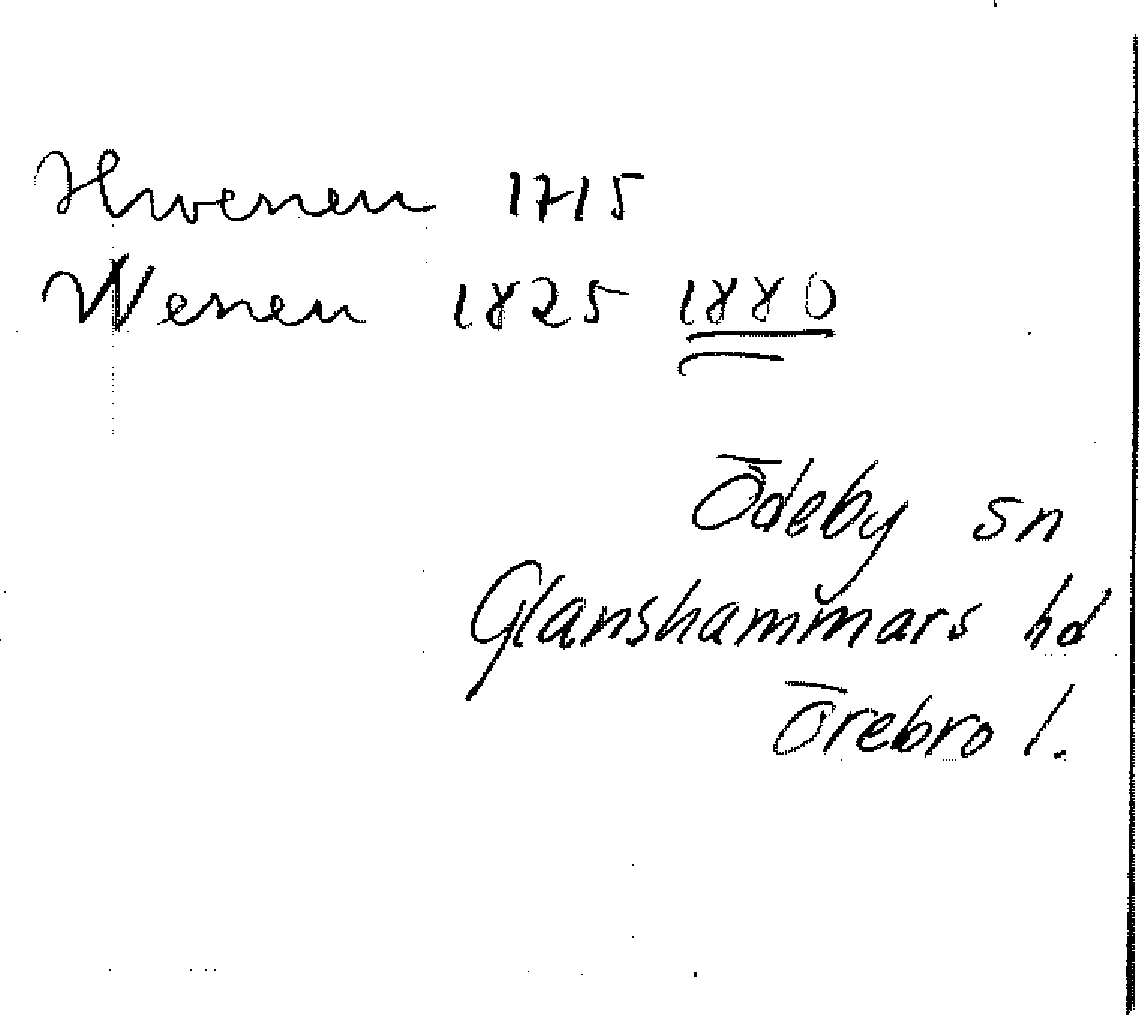 Hwenen 1715
Wenen 1825 1880
Ödeby sn
Glanshammars hd
Örebro l.